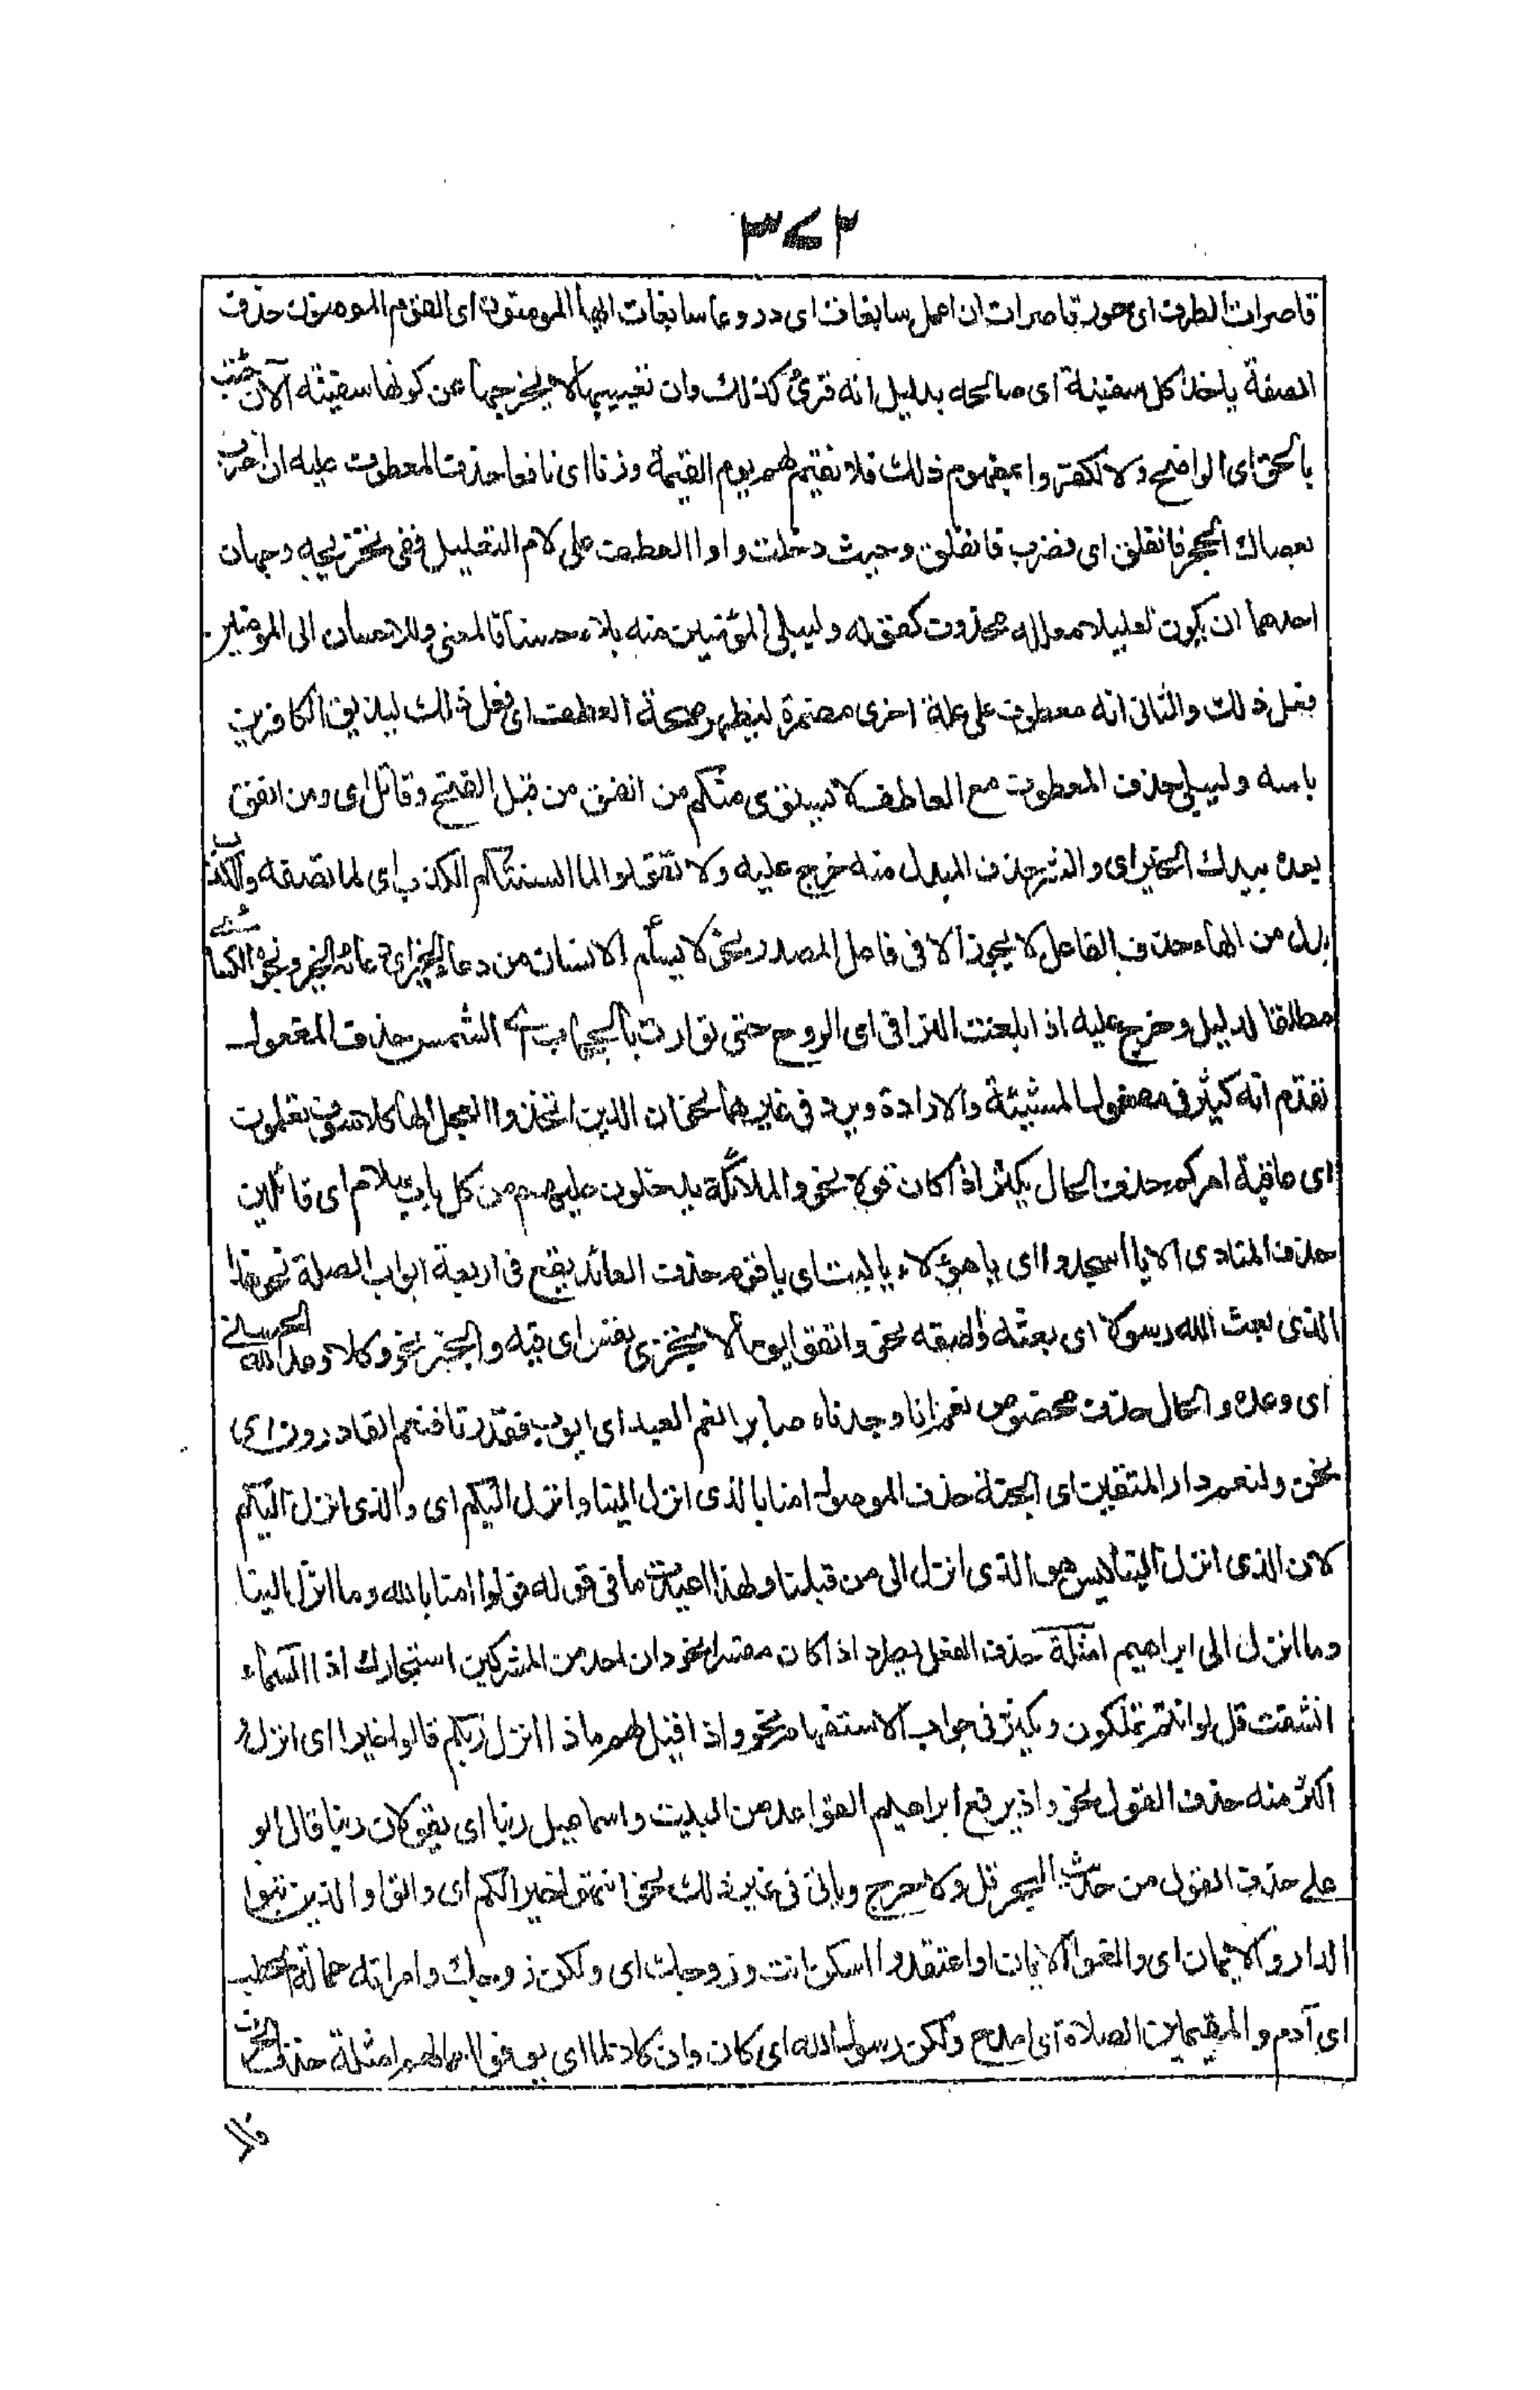 ٣٧٢
قاصرات الطرف اى حور قاصرات ان اعمل سابغات اى دروعا سابغات ايها المومنون اى القوم المومنون حذف
الصفة ياخذ كل سفينة اى صالحه بدليل انه قرئ كذلك وان تعييبها لا يخرجها عن كونها سفينة الآن جئت
بالحق اى الواضح ولا لكفروا بمفهوم ذلك فلا نقيم لهم يوم القيمة وزنا اى نافعا حذف المعطوف عليه ان اضرب
بعصاك الحجر فانفلق اى فضرب فانفلق وحيث دخلت واو العطف على لام التعليل ففى تخريجه وجهان
احدهما ان يكون تعليلا معلله محذوف كقوله وليبلى المؤمنين منه بلاء حسنا فالمعنى وللاحسان الى المومنين
فعل ذلك والثانى انه معطوف على علة اخرى مضمرة ليظهر صحة العطف اى فعل ذلك ليذيق الكافرين
باسه وليبلى حذف المعطوف مع العاطف لا يستوى منكم من انفق من قبل الفتح وقاتل اى ومن انفق
بعده بيدك الخير اى والشر حذف المبدل منه خرج عليه ولا تقولوا لما السنتكم الكذب اى لما تصفه والكذب
بدل من الهاء حذف الفاعل لا يجوز الا فى فاعل المصدر نحو لا يسأم الانسان من دعاء الخير اى دعائه الخير وجوزه الكسائى
مطلقا لدليل وخرج عليه اذا بلغت التراقى اى الروح حتى توارت بالحجاب اى الشمس حذف المفعول
تقدم انه كثير فى مفعول المشيئة والارادة ويرد فى غيرهما نحو ان الذين اتخذوا العجل الها كلا سوف تعلمون
اى عاقبة امركم حذف الحال يكثر اذا كان قولا نحو والملائكة يدخلون عليهم من كل باب سلام اى قائلين
حذف المنادى الا يا اسجدوا اى يا هؤلاء يا ليت اى يا قوم حذف العائد يقع فى اربعة ابواب الصلة نحو هذا
الذى بعث الله رسولا اى بعثه والصفة نحو واتقوا يوما لا تجزى نفس اى فيه والخبر نحو وكلا وعد الله الحسنى
اى وعده والحال حذف مخصوص نعم انا وجدناه صابرا نعم العبد اى ايوب فقدرنا فنعم القادرون اى
نحن ولنعم دار المتقين اى الجنة حذف الموصول امنا بالذى انزل الينا وانزل اليكم اى والذى انزل اليكم
لان الذى انزل الينا ليس هو الذى انزل الى من قبلنا ولهذا اعيدت ما فى قوله قولوا امنا بالله وما انزل الينا
وما انزل الى ابراهيم امثلة حذف الفعل يطرد اذا كان مفسرا نحو وان احد من المشركين استجارك اذا السماء
انشقت قل لو انتم تملكون ويكثر فى جواب الاستفهام نحو واذا قيل لهم ماذا انزل ربكم قالوا خيرا اى انزل و
اكثر منه حذف القول نحو واذ يرفع ابراهيم القواعد من البيت واسماعيل ربنا اى يقولان ربنا قال ابو
على حذف القول من حديث البحر قل ولا حرج وياتى فى غير ذلك نحو انتهوا خيرا لكم اى واتوا والذين تبوا
الدار والايمان اى والفوا الايمان او اعتقدوا اسكن انت وزوجك اى وليسكن زوجك وامراته حمالة الحطب
اى آدم والمقيمين الصلاة اى امدح ولكن رسول الله اى كان وان كلا لما اى يوفوا اعمالهم امثلة حذف الحرف
قال